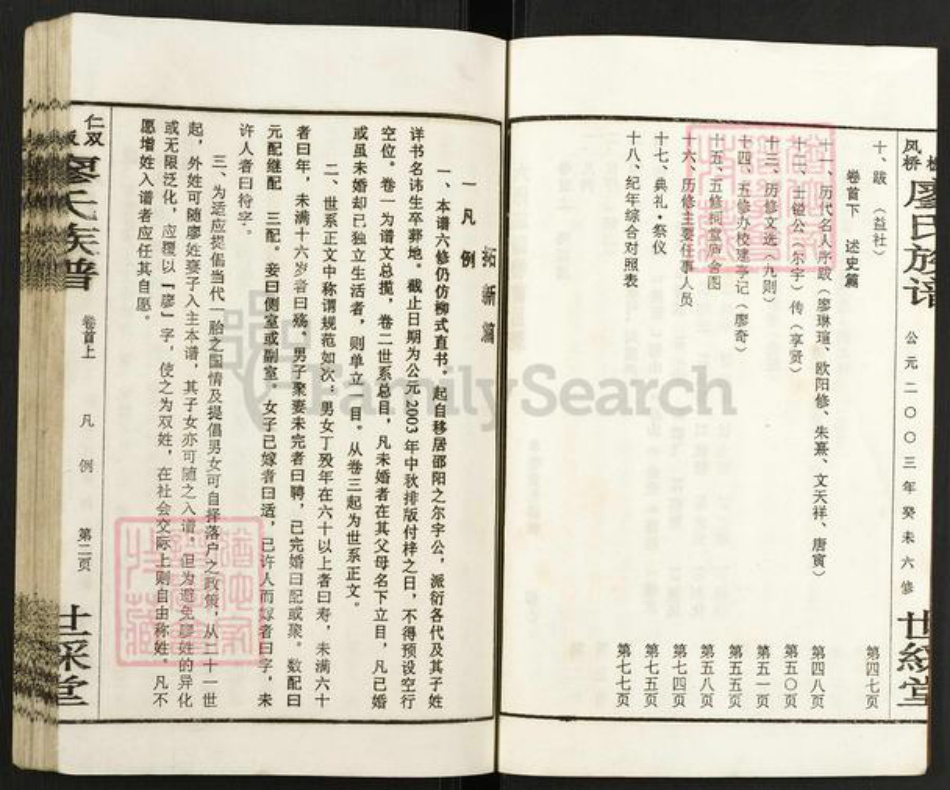 枫桥
廖氏族谱
公元二〇〇三年癸未六修
世綵堂
十、跋(益社) 第四七页
卷首下 述史篇
十一、历代名人序跋(廖琳瑄、欧阳修、朱熹、文天祥、唐寅) 第四八页
十二、士镒公(尔宇)传(享贤) 第五〇页
十三、历修文选(九则) 第五一页
十四、五修办校建亭记(廖奇) 第五五页
十五、五修祠堂庐舍图 第五八页
十六、历修主要任事人员 第七四页
十七、典礼·祭仪 第七五页
十八、纪年综合对照表 第七七页
拓新篇
一凡例
一、本谱六修仍仿柳式直书。起自移居邵阳之尔宇公,派衍各代及其子姓
详书名讳生卒葬地。截止日期为公元2003年中秋排版付梓之日,不得预设空行
空位。卷一为谱文总揽,卷二世系总目,凡未婚者在其父母名下立目,凡已婚
或虽未婚却已独立生活者,则单立一目。从卷三起为世系正文。
二、世系正文中称谓规范如次:男女丁殁年在六十以上者曰寿,未满六十
者曰年,未满十六岁者曰殇。男子聚妻未完者曰聘,已完婚曰配或聚。数配曰
元配继配 三配。妾曰侧室或副室。女子已嫁者曰适,已许人而嫁者曰字,未
许人者曰待字。
三、为适应提倡当代一胎之国情及提倡男女可自择落户之政策,从二十一世
起,外姓可随廖姓妻子入主本谱,其子女亦可随之入谱。但为避免廖姓的异化
或无限泛化,应覆以「廖」字,使之为双姓,在社会交际上则自由称姓。凡不
愿增姓入谱者应任其自愿。
仁双
廖氏族谱
卷首上
凡例
第二页
世綵堂
FamilySearch